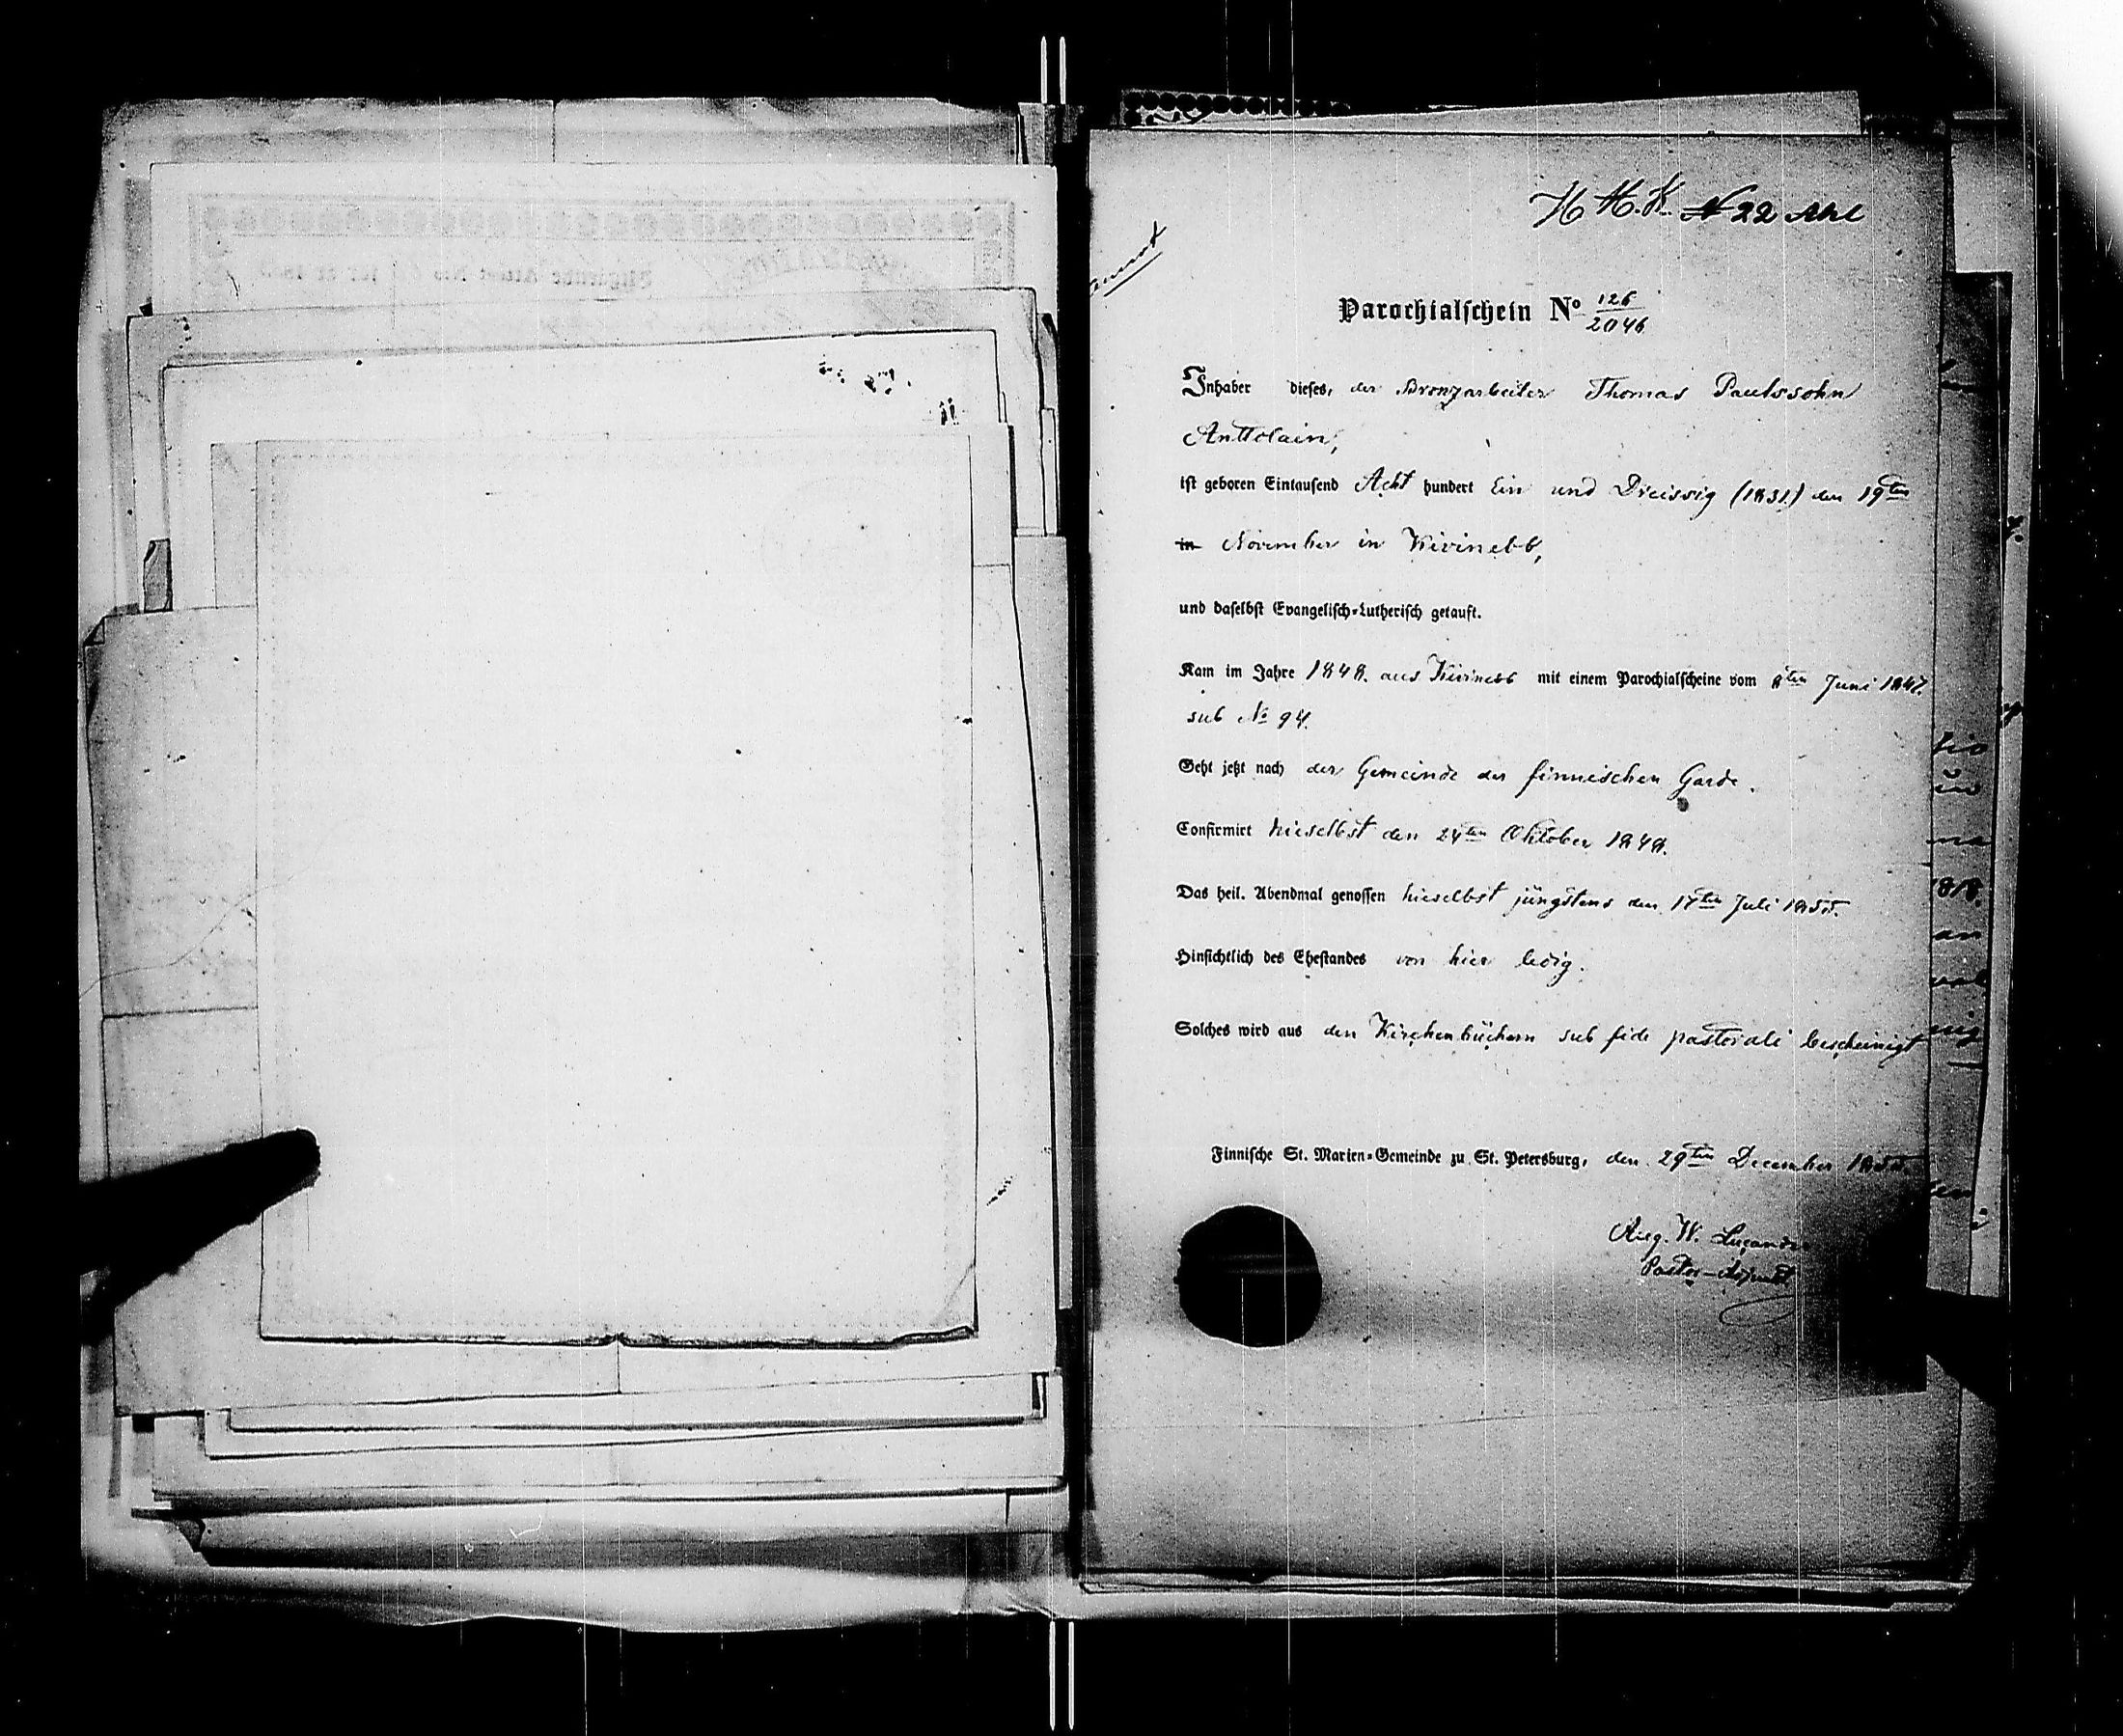 H M. K. N 22
Parochialschein No 126/2046
Inhaber dieses, der Bronzarbeiter Thomas Paulssohn
Anttolain,
ist geboren Eintausend Acht hundert Ein und Dreissig (1831) den 19ten
in November in Kivinebb,
und daselbst Evangelisch-Lutherisch getauft.
Kam im Jahre 1848. aus Kivinebb mit einem Parochialscheine vom 8ten Juni 1847.
sub No 94.
Geht jetzt nach der Gemeinde der finnischen Garde.
Confirmirt hieselbst den 24ten Oktober 1848.
Das heil. Abendmal genossen hieselbst jüngstens den 17ten Juli 1855.
Hinsichtlich des Ehestandes von hier ledig.
Solches wird aus den Kirchenbüchern sub fide pastorali bescheinigt
Finnische St. Marien-Gemeinde zu St. Petersburg, den 29ten December 1855.
Aug. W. Lucander
Pastor-Adjunct